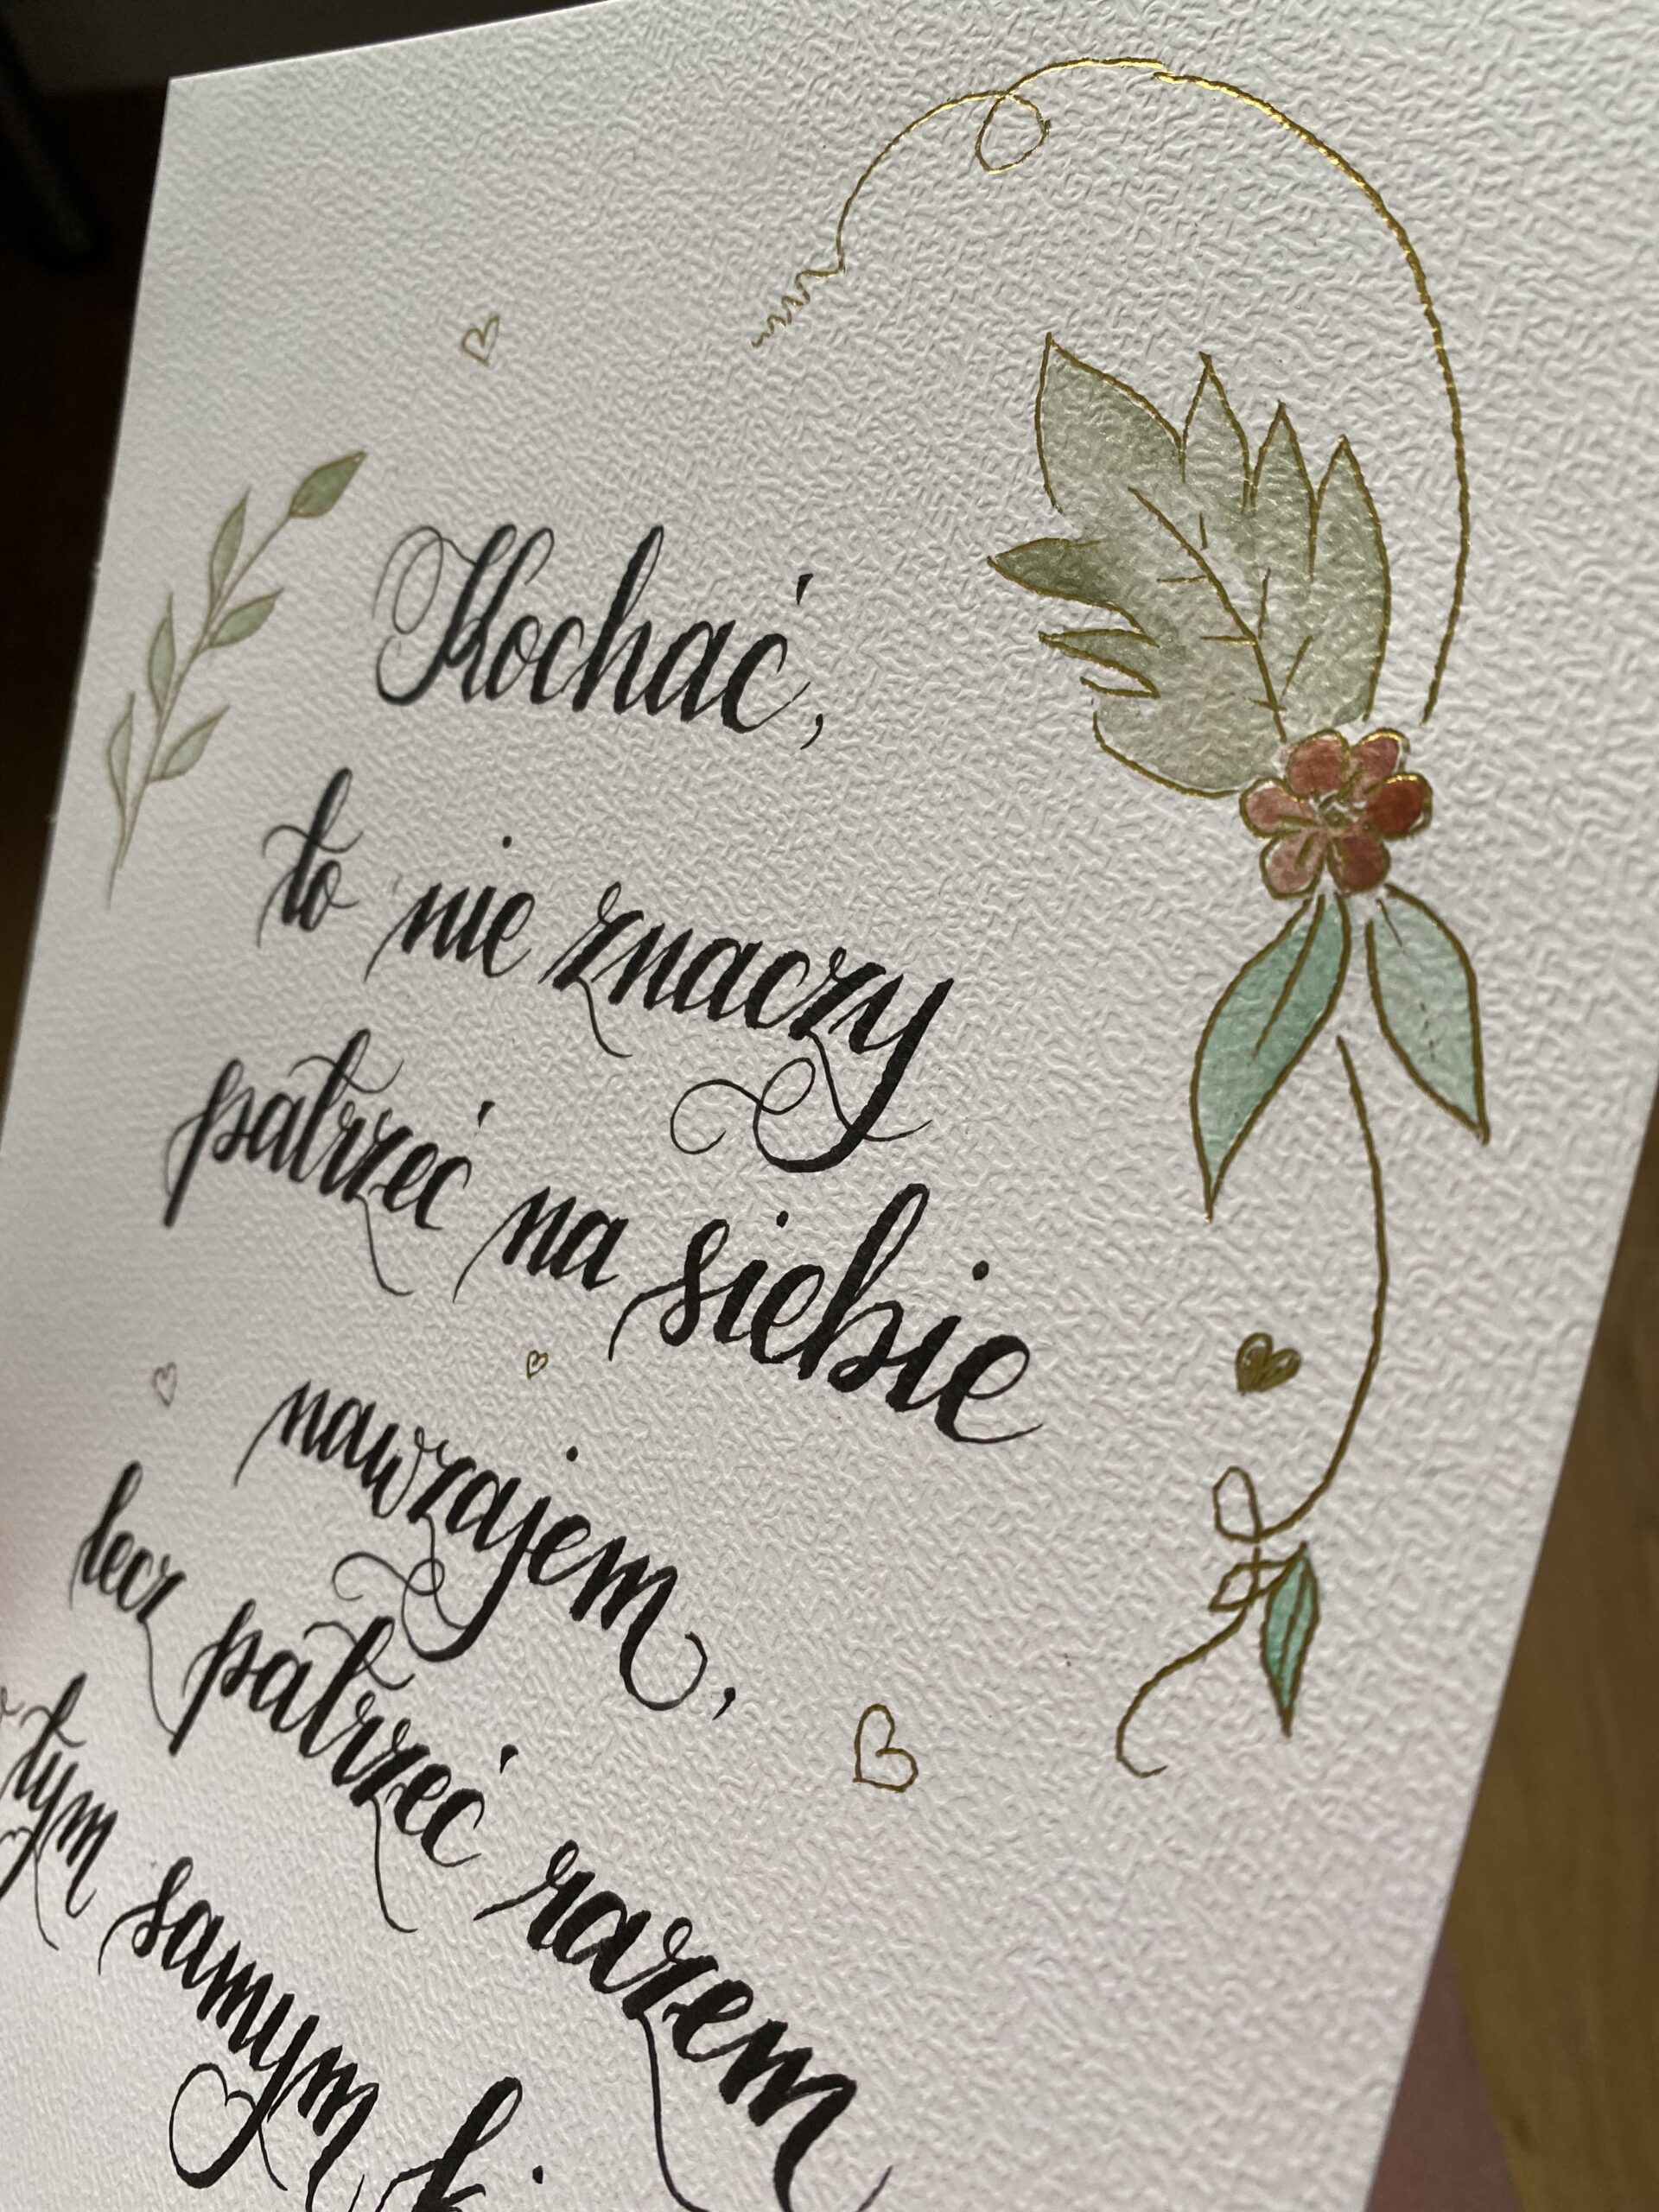 Kochać,
to nie znaczy
patrzeć na siebie
nawzajem,
lecz patrzeć razem
tym samym